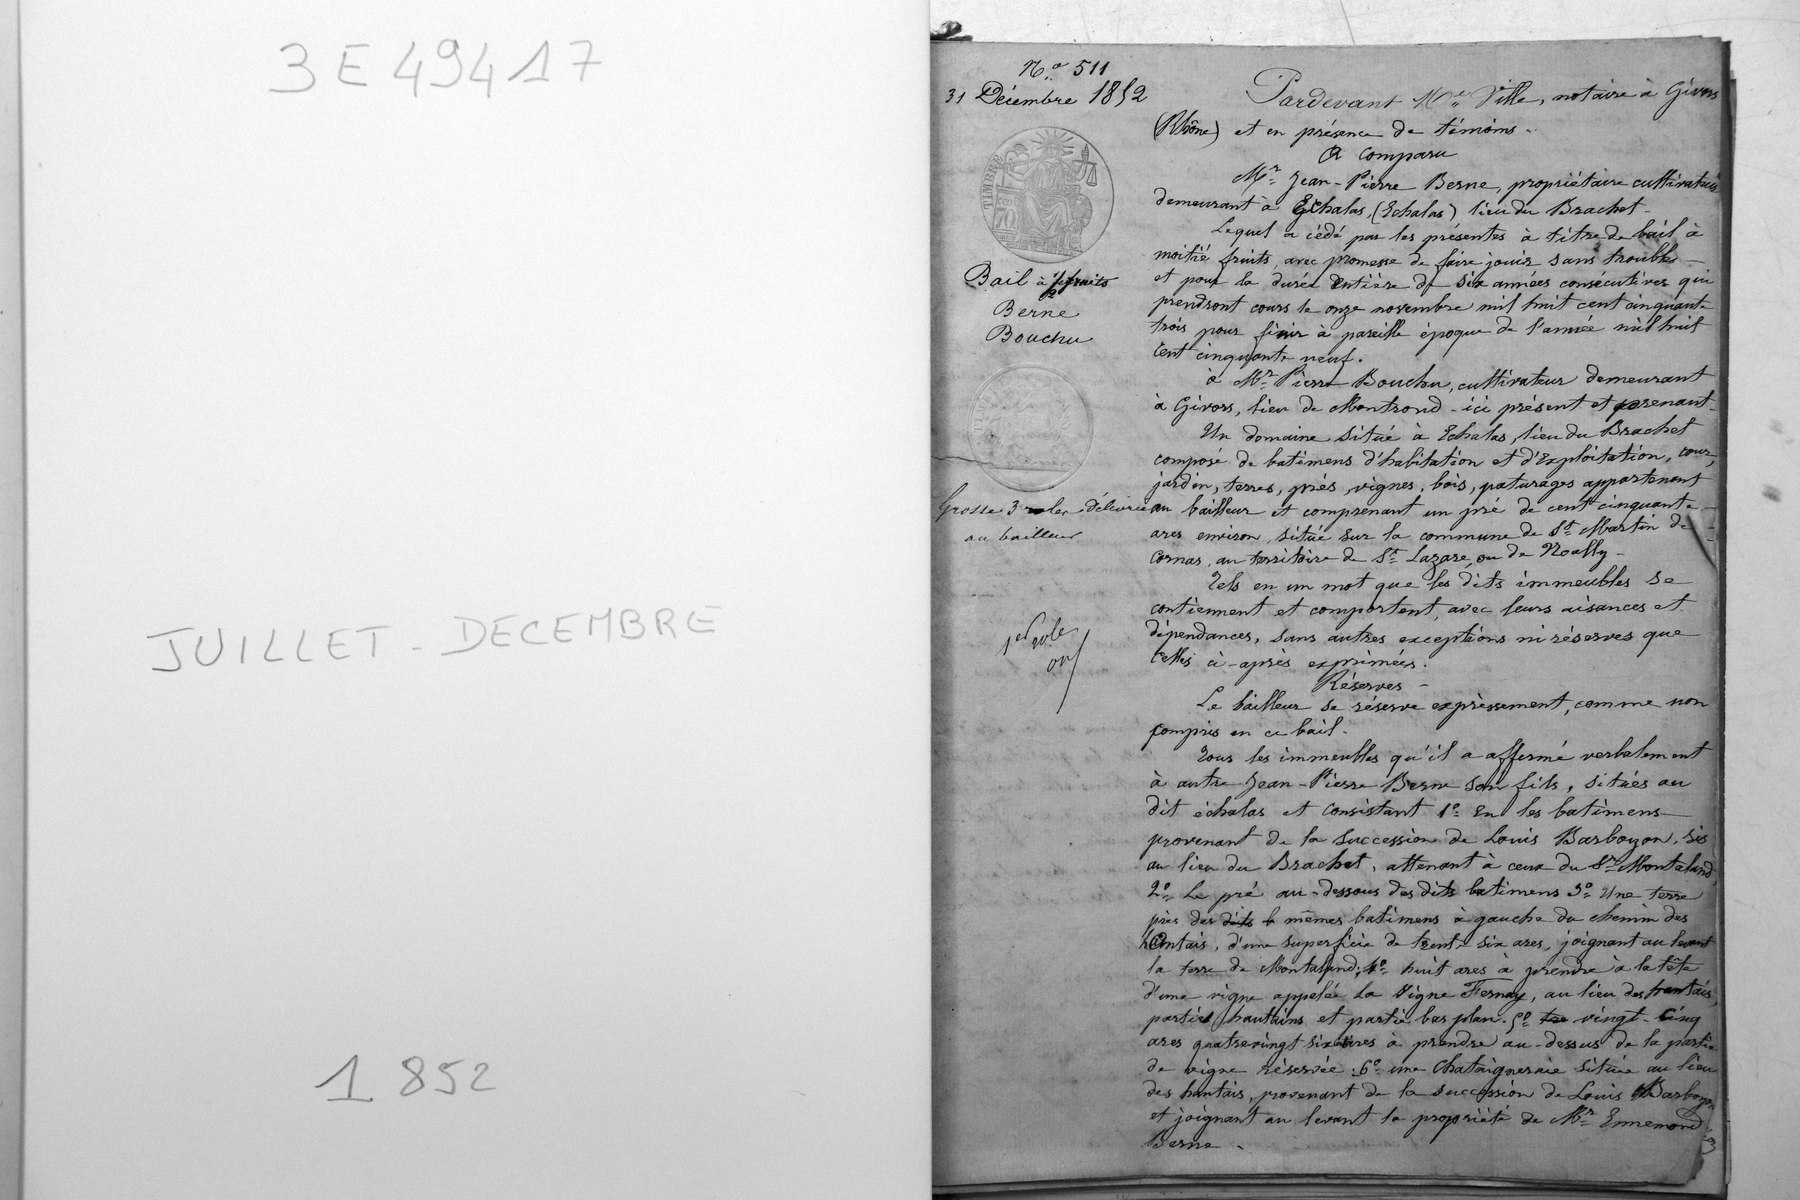 3 E 49417
JUILLET - DECEMBRE
1852
N.º 511
31 Décembre 1852
TIMBRE
70
Bail à 1/2 fruits
Berne
Bouchu
Grosse 3 roles délivrée
au bailleur
1er role
Pardevant Me Ville, notaire à Givors
(Rhône) et en présence de témoins -
A comparu
Mr Jean-Pierre Berne, propriétaire cultivateur
demeurant à Echalas, (Echalas) lieu du Brachet -
Lequel a cédé par les présentes à titre de bail à
moitié fruits, avec promesse de faire jouir sans trouble -
et pour la durée entière de six années consécutives qui
prendront cours le onze novembre mil huit cent cinquante
trois pour finir à pareille époque de l'année mil huit
cent cinquante neuf.
à Mr Pierre Bouchu, cultivateur demeurant
à Givors, lieu de Montrond - ici présent et prenant -
Un domaine situé à Echalas, lieu du Brachet
composé de batimens d'habitation et d'Exploitation, cour,
jardin, terres, prés, vignes, bois, paturages appartenant
au bailleur et comprenant un pré de cent cinquante
ares environ, situé sur la commune de St Martin de
Cornas, au territoire de St Lazare, ou de Noailly -
Tels en un mot que les dits immeubles se
contiennent et comportent, avec leurs aisances et
dépendances, sans autres exceptions ni réserves que
celles ci-après exprimées.
Réserves -
Le bailleur se réserve expressement, comme non
compris en ce bail -
Tous les immeubles qu'il a affermé verbalement
à autre Jean-Pierre Berne son fils, situés au
dit échalas et consistant 1º En les batimens
provenant de la succession de Louis Barboyon, sis
au lieu du Brachet, attenant à ceux du Sr Montaland,
2º Le pré au-dessous des dits batimens 3º Une terre
près des dits b mêmes batimens à gauche du chemin des
hantais, d'une superficie de trente six ares, joignant au levant
la terre de Montaland; 4º huit ares à prendre à la tête
d'une vigne appelée La Vigne Fernay, au lieu des hantais,
partie hautains et partie bas plan. 5º vingt-cinq
ares quatrevingt six ares à prendre au-dessus de la partie
de vigne réservée; 6º une chataigneraie située au lieu
des hantais, provenant de la succession de Louis Barboyon
et joignant au levant la propriété de Mr Ennemond
Berne -